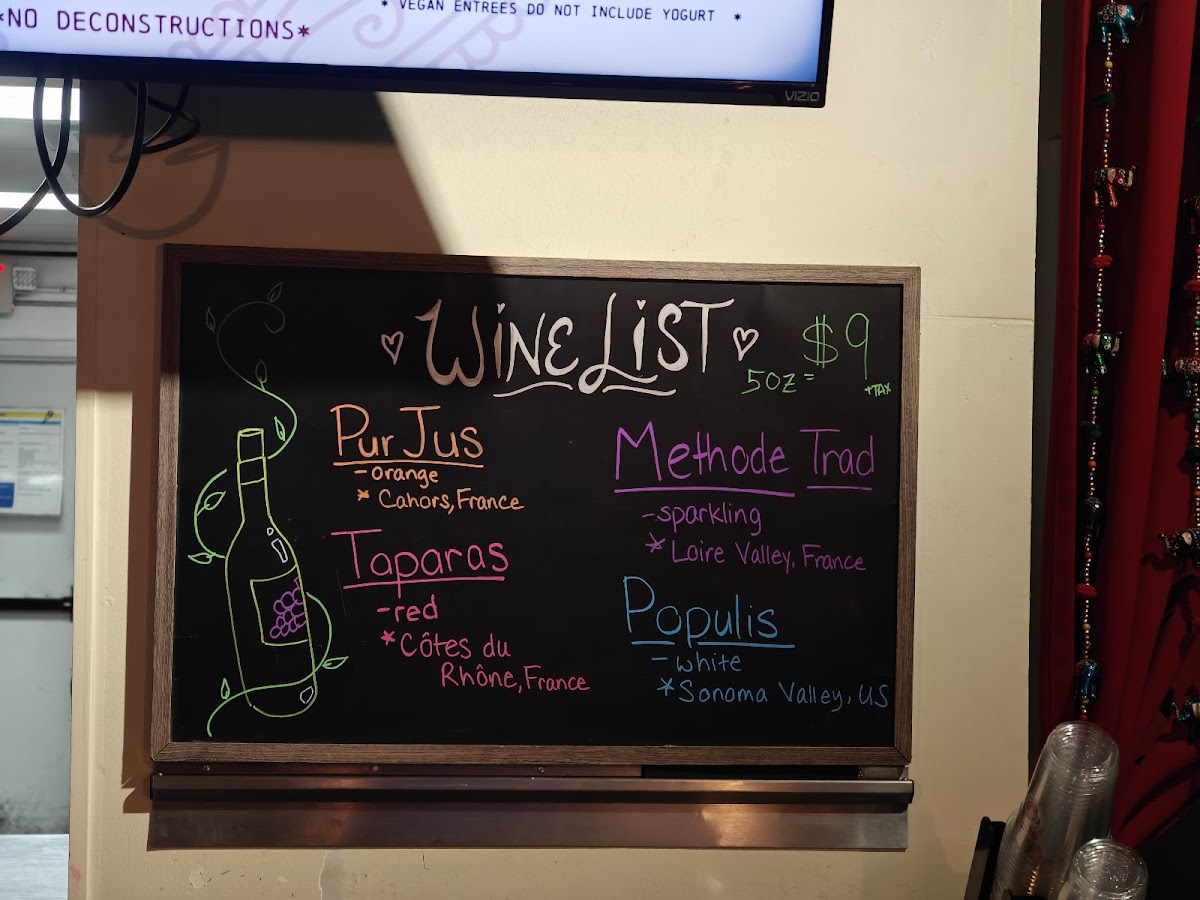 *NO DECONSTRUCTIONS*
* VEGAN ENTREES DO NOT INCLUDE YOGURT *
VIZIO
WINE LIST
5oz = $9
+TAX
Pur Jus
- orange
* Cahors, France
Taparas
- red
* Côtes du
Rhône, France
Methode Trad
- sparkling
* Loire Valley, France
Populis
- white
* Sonoma Valley, US